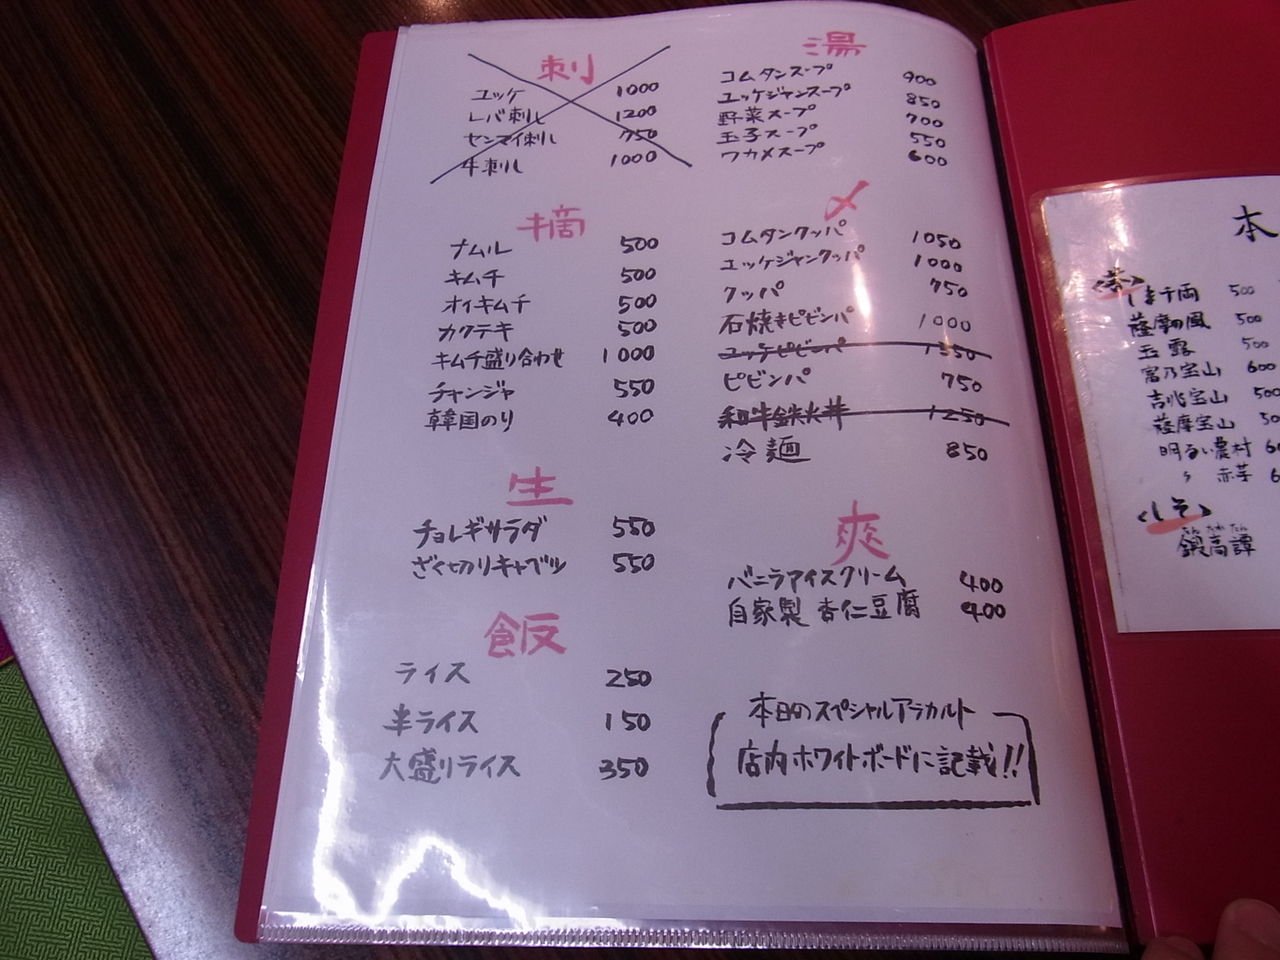 刺
ユッケ 1000
レバ刺し 1200
センマイ刺し 750
牛刺し 1000
摘
ナムル 500
キムチ 500
オイキムチ 500
カクテキ 500
キムチ盛り合わせ 1000
チャンジャ 550
韓国のり 400
生
チョレギサラダ 550
ざく切りキャベツ 550
飯
ライス 250
半ライス 150
大盛りライス 350
湯
コムタンスープ 900
ユッケジャンスープ 850
野菜スープ 700
玉子スープ 550
ワカメスープ 600
〆
コムタンクッパ 1050
ユッケジャンクッパ 1000
クッパ 750
石焼きピビンパ 1000
ユッケピビンパ 1350
ピビンパ 750
和牛鉄火丼 1250
冷麺 850
爽
バニラアイスクリーム 400
自家製 杏仁豆腐 400
本日のスペシャルアラカルト
店内ホワイトボードに記載!!
本
<芋>
しま千両 500
薩摩の風 500
玉露 500
富乃宝山 600
吉兆宝山 500
薩摩宝山
明るい農村
〃 赤芋
<しそ>
鍛高譚